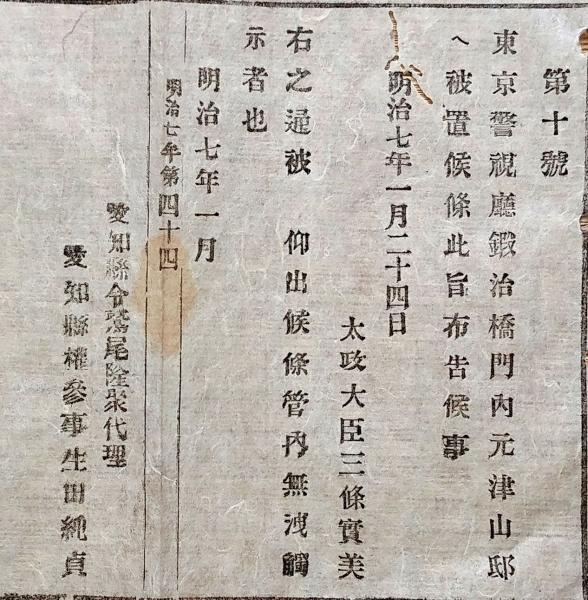 第十號
東京警視廳鍛冶橋門內元津山邸
へ被置候條此旨布告候事
明治七年一月二十四日
太政大臣三條實美
右之通被 仰出候條管內無洩觸
示者也
明治七年一月
明治七年第四十四
愛知縣令鷲尾隆聚代理
愛知縣權參事生田純貞